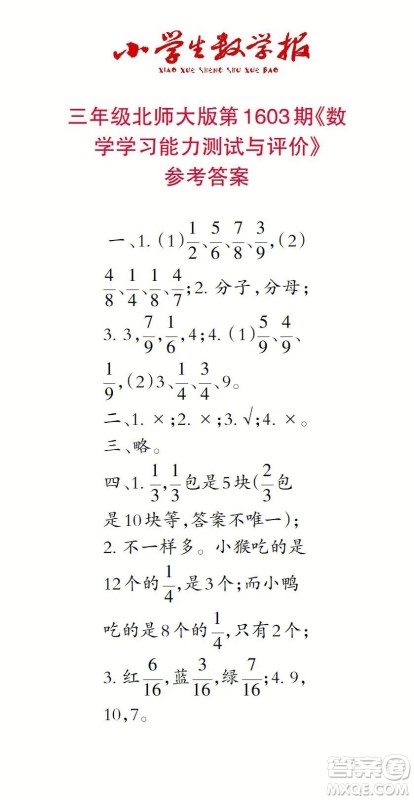 小学生数学报
XIAO XUE SHENG SHU XUE BAO
三年级北师大版第1603期《数
学学习能力测试与评价》
参考答案
一、1. (1) 1/2、5/6、7/8、3/9, (2)
4/8、1/4、1/8、4/7; 2. 分子, 分母;
3. 3, 7/9, 1/6, 4; 4. (1) 5/9、4/9、
1/9, (2) 3、1/4、3/4、9。
二、1. ×; 2. ×; 3. √; 4. ×。
三、略。
四、1. 1/3, 1/3包是5块(2/3包
是10块等, 答案不唯一);
2. 不一样多。小猴吃的是
12个的1/4, 是3个; 而小鸭
吃的是8个的1/4, 只有2个;
3. 红6/16, 蓝3/16, 绿7/16; 4. 9,
10, 7。
答案圈
MXQE.COM